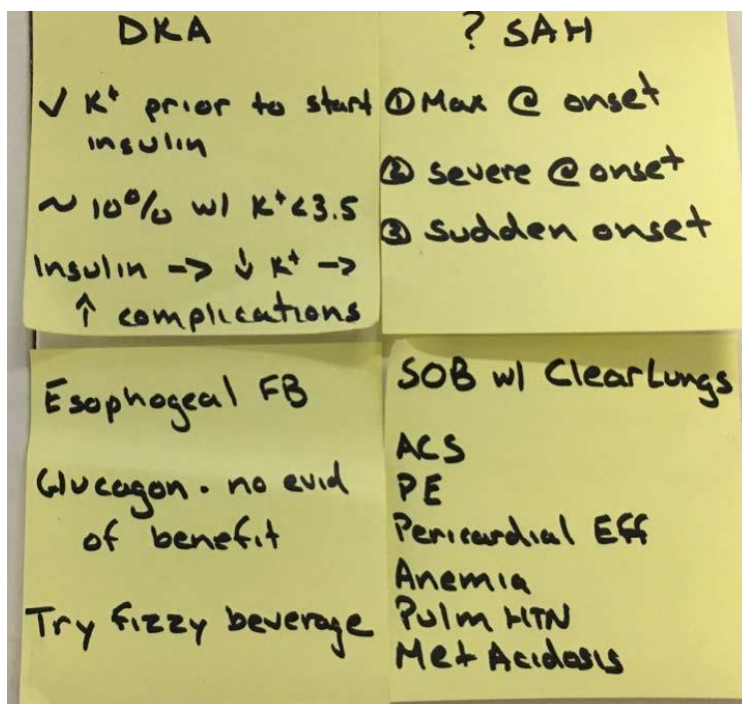 DKA
✓ K⁺ prior to start
insulin
~ 10% w/ K⁺<3.5
Insulin -> ↓ K⁺ ->
↑ complications
? SAH
① Max @ onset
② severe @ onset
③ Sudden onset
Esophogeal FB
Glucagon. no evid
of benefit
Try fizzy beverage
SOB w/ Clear Lungs
ACS
PE
Pericardial Eff
Anemia
Pulm HTN
Met Acidosis